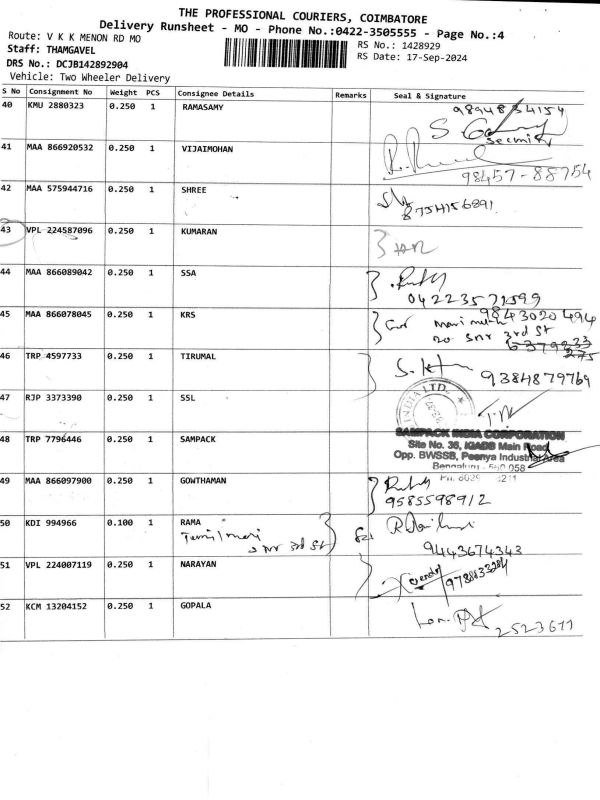 THE PROFESSIONAL COURIERS, COIMBATORE
Delivery Runsheet - MO - Phone No.:0422-3505555 - Page No.:4
Route: V K K MENON RD MO
RS No.: 1428929
Staff: THAMGAVEL
RS Date: 17-Sep-2024
DRS No.: DCJB142892904
Vehicle: Two Wheeler Delivery
S No Consignment No Weight PCS Consignee Details Remarks Seal & Signature
40 KMU 2880323 0.250 1 RAMASAMY 9894834154
Security
41 MAA 866920532 0.250 1 VIJAIMOHAN
98457-88754
42 MAA 575944716 0.250 1 SHREE
8754156891
43 VPL 224587096 0.250 1 KUMARAN
44 MAA 866089042 0.250 1 SSA
04223571599
45 MAA 866078045 0.250 1 KRS 9843020494
20 SNR 3rd St
46 TRP 4597733 0.250 1 TIRUMAL
9384879769
47 RJP 3373390 0.250 1 SSL
INDIA LTD.
48 TRP 7796446 0.250 1 SAMPACK
SAMPACK INDIA CORPORATION
Site No. 36, KIADB Main Road
Opp. BWSSB, Peenya Industrial Area
Bengaluru - 560 058
49 MAA 866097900 0.250 1 GOWTHAMAN
9585598912
50 KDI 994966 0.100 1 RAMA
3rd St
9443674343
51 VPL 224007119 0.250 1 NARAYAN
52 KCM 13204152 0.250 1 GOPALA
2523611